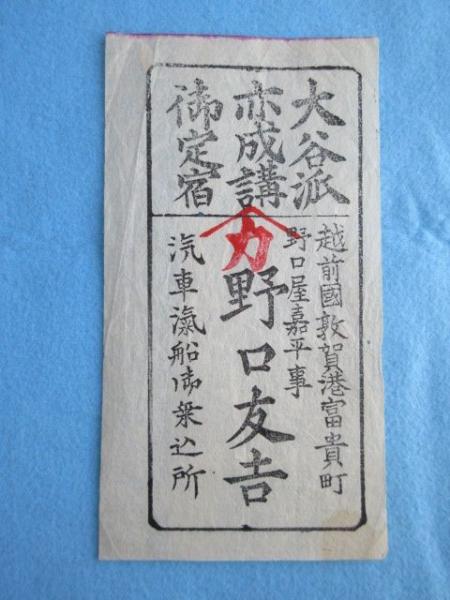 大谷派
亦成講
御定宿
越前國敦賀港富貴町
野口屋嘉平事
カ
野口友吉
汽車滊船御乗込所